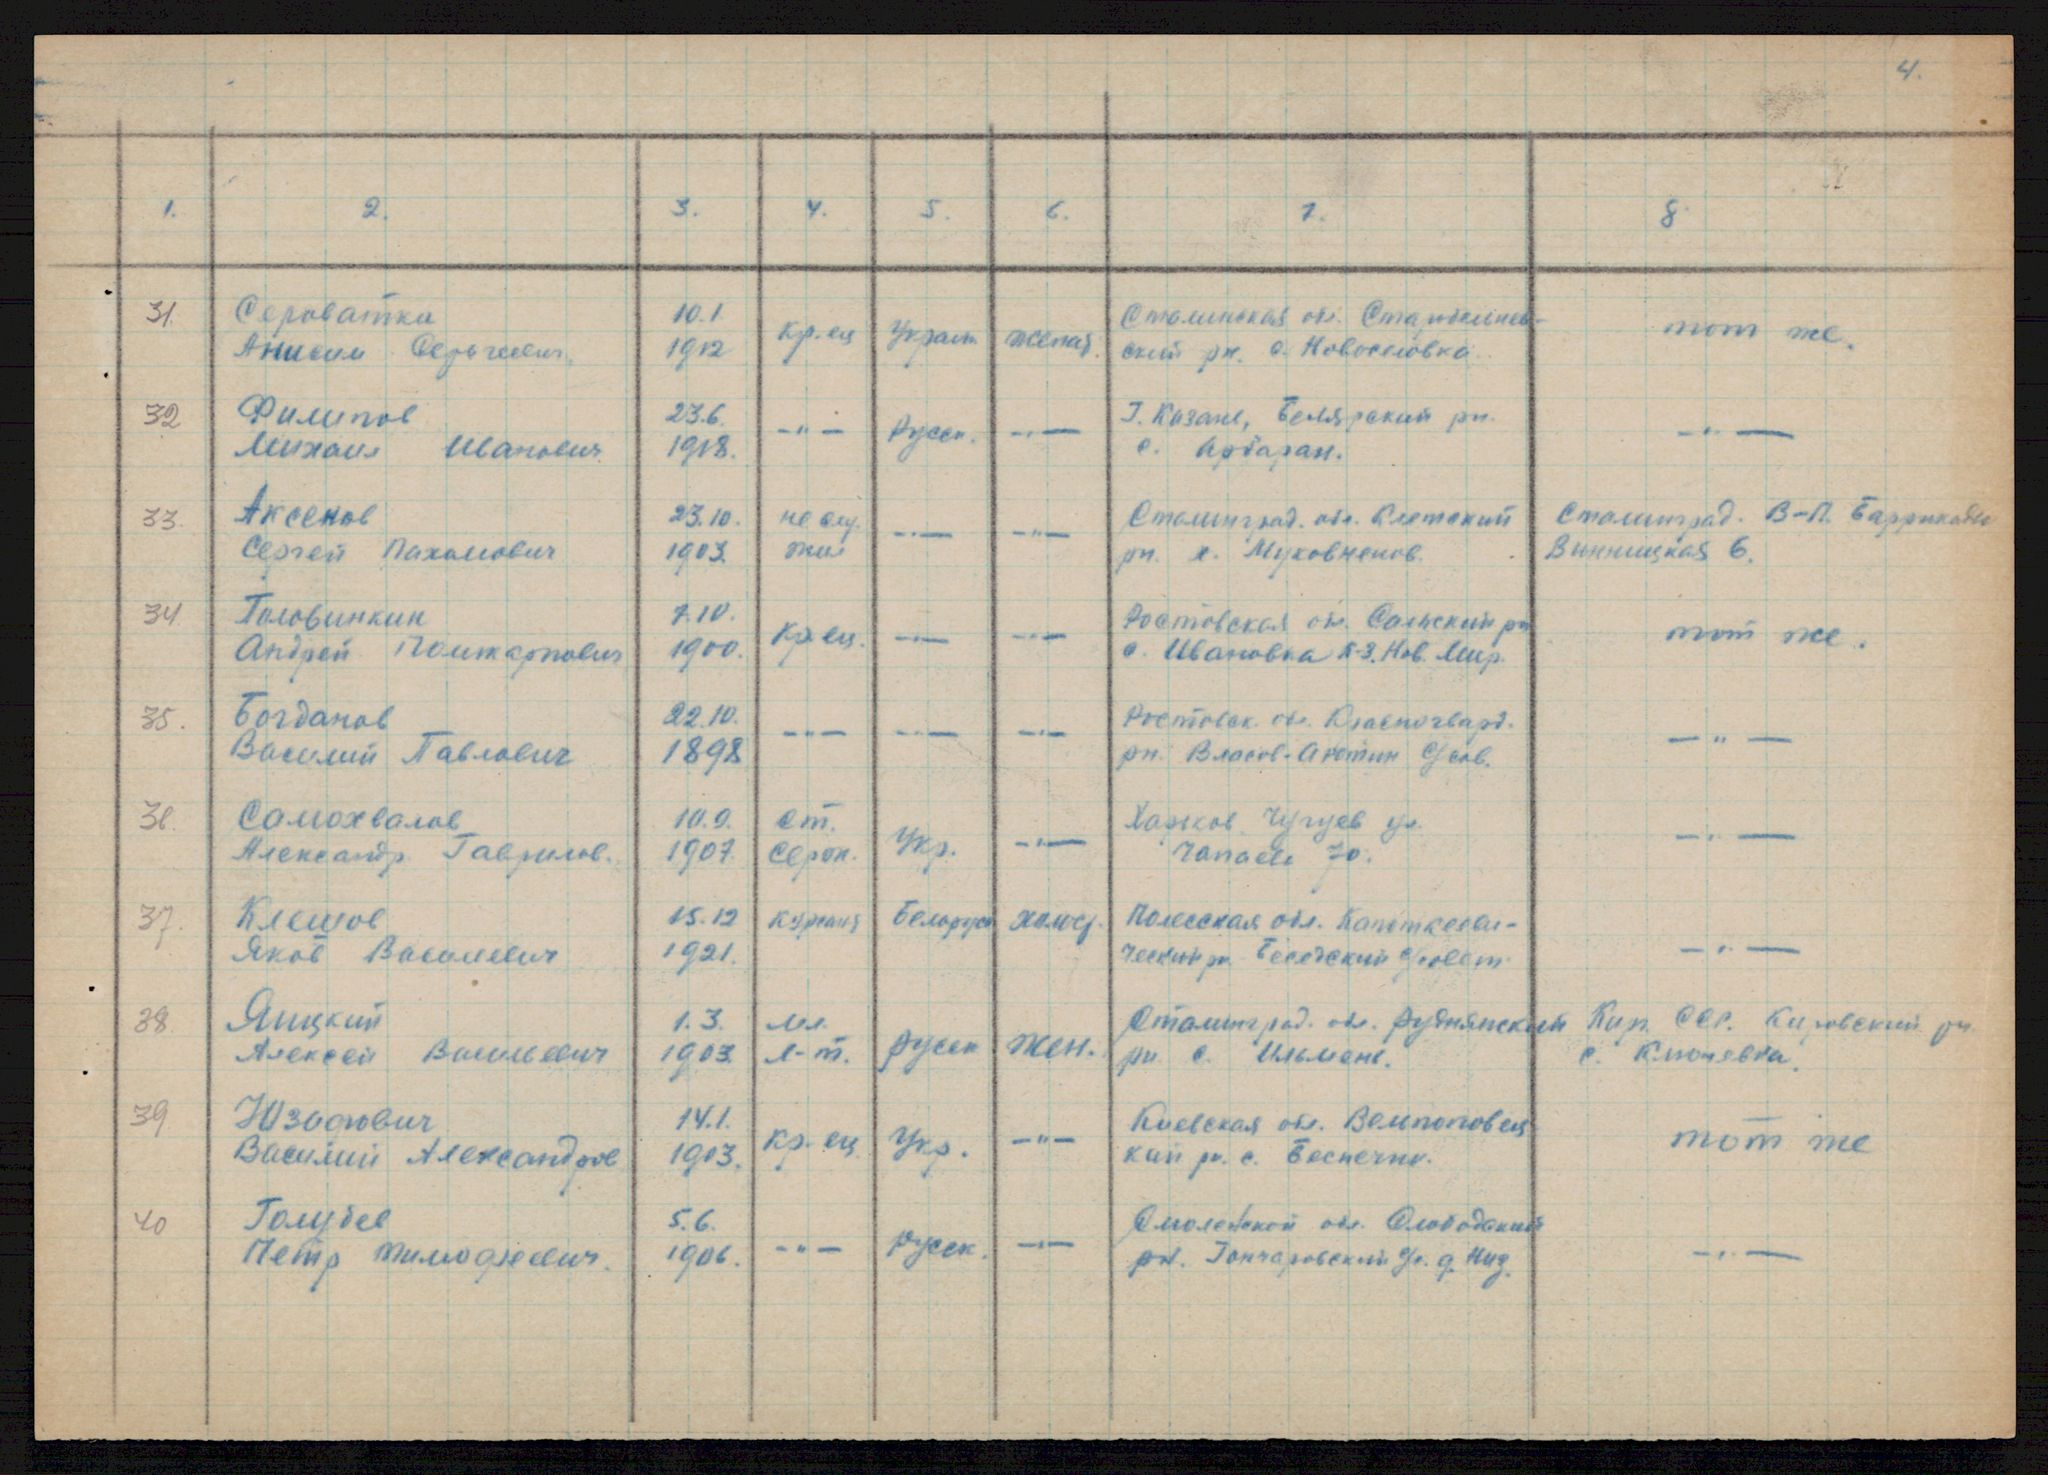 4.
1. 2. 3. 4. 5. 6. 7. 8.
31. Сероватка 10.1. Сталинская обл. Старобешев-
Анисим Сергеевич. 1912 кр.ец Украин женат. ский рн. с. Новоселовка. тот же.
32 Филипов 23.6. Г. Казань, Белярский рн.
Михаил Иванович 1918. -"- Русск. -"- с. -"-
33. Аксенов 23.10. не слу. Сталинград. обл. Клетский Сталинград. В-П. Баррикады
Сергей Пахомович 1903. жил -"- -"- рн. х. Муковненов. Винницкая 6.
34. Головинкин 7.10. Ростовская обл. Сальский рн
Андрей Поликарпович 1900. кр.ец. -"- -"- с. Ивановка К-З. Нов. Мир. тот же.
35. Богданов 22.10. Ростовск. обл. Красногвард.
Василий Павлович 1898 -"- -"- -"- рн. Власов-Аютин С/сов. -"-
36. Самохвалов 10.9. ст. Харьков Чугуев ул.
Александр Гаврилов. 1907. серж. Укр. -"- Чапаева 70. -"-
37. Клешов 15.12 курсант Белорус холост. Полесская обл. Копаткеви-
Яков Василевич 1921. ческий рн С/совет. -"-
38. Яицкий 1.3. мл. Сталинград. обл. Руднянский Кир. ССР. Кировский рн.
Алексей Васильевич 1903. л-т. Русск Жен. рн. с. Ильмень. с. Ключевка.
39 Юзафович 14.1. Киевская обл.
Василий Александров 1903. кр.ец Укр. -"- кий рн. с. тот же
40 Голубев 5.6. Смоленской обл. Слободский
Петр Тимофеевич. 1906. -"- Русск. -"- рн. Гончаровский -"-